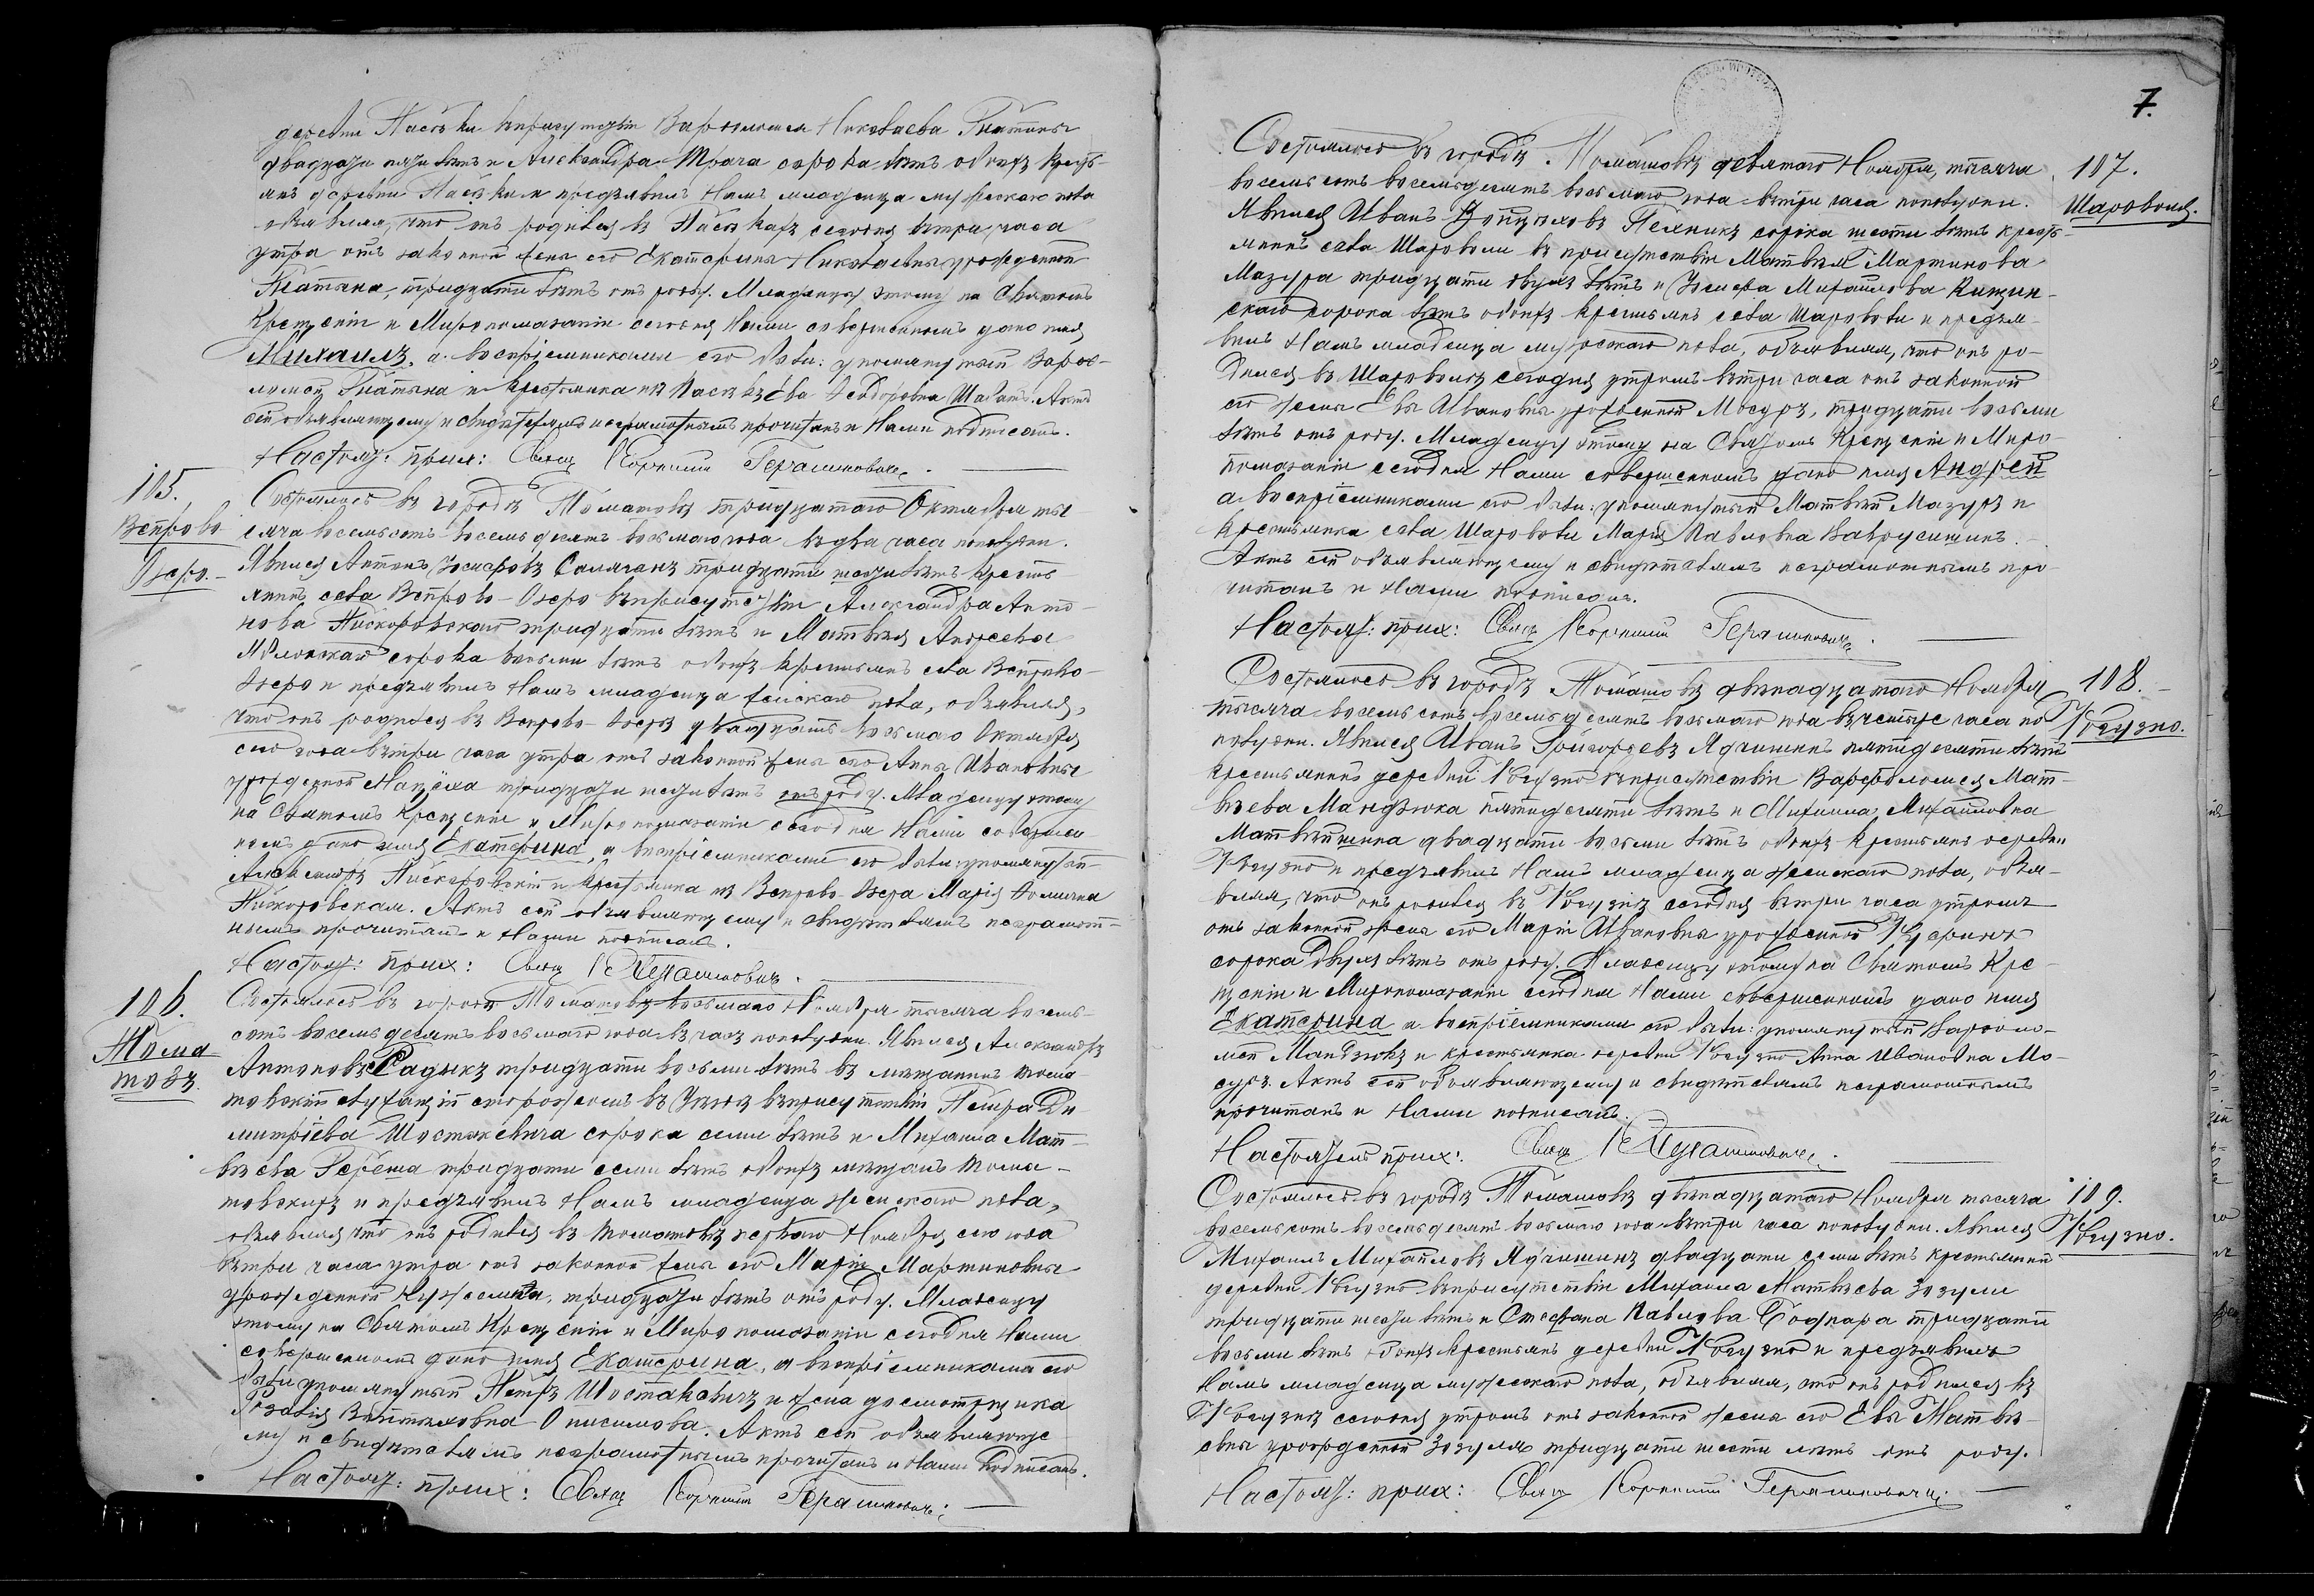 деревни Пасѣки въ присутствіи Варѳоломея Николаева Гнатына
двадцати пяти лѣтъ и Александра Трача сорока лѣтъ обоихъ кресть-
янъ деревни Пасѣки и предъявилъ Намъ младенца мужескаго пола
объявляя, что онъ родился въ Пасѣкахъ сегодня въ три часа
утра отъ законной жены его Екатерины Николаевны урожденной
Гнатына, тридцати лѣтъ отъ роду. Младенцу этому на Святомъ
Крещеніи и Миропомазаніи сегодня Нами совершенномъ дано имя
Михаилъ, а воспріемниками его были: упомянутый Варѳо-
ломей Гнатына и крестьянка изъ Пасѣкъ Ева Ѳеодоровна. Актъ
сей объявляющему и свидѣтелямъ неграмотнымъ прочитанъ и Нами подписанъ.
Настоят: прих: Свящ Корнилій Герашиновичъ.
105.
Вепрово
Озеро.
Состоялось въ городѣ Томашовѣ тридцатаго Октября ты-
сяча восемьсотъ восемьдесятъ восьмаго года въ два часа пополудни.
Явился Антонъ Іосифовъ тридцати шести лѣтъ кресть-
янинъ села Вепрово-Озеро въ присутствіи Александра Анто-
нова Пискоровскаго тридцати лѣтъ и Матвѣя Андреева
Яблонскаго сорока восьми лѣтъ обоихъ крестьянъ села Вепрово-
Озеро и предъявилъ Намъ младенца женскаго пола, объявляя,
что онъ родился въ Вепрово-Озерѣ двадцать восьмаго Октября
сего года въ три часа утра отъ законной жены его Анны Ивановны
урожденной тридцати шести лѣтъ отъ роду. Младенцу этому
на Святомъ Крещеніи и Миропомазаніи сегодня Нами совершен-
номъ дано имя Екатерина, а воспріемниками его были: упомянутый
Александръ Пискоровскій и крестьянка изъ Вепрово-Озера Марія
Пискоровская. Актъ сей объявляющему и свидѣтелямъ неграмот-
нымъ прочитанъ и Нами подписанъ.
Настоят: прих: Свящ К Герашиновичъ.
106.
Тома
шовъ.
Состоялось въ городѣ Томашовѣ восьмаго Ноября тысяча восемь-
сотъ восемьдесятъ восьмаго года въ часъ пополудни. Явился Александръ
Антоновъ Радыкъ тридцати восьми лѣтъ мѣщанинъ тома-
шовскій служащій сторожемъ въ въ присутствіи Петра Ди-
митріева Шостакевича сорока семи лѣтъ и Михаила Мат-
вѣева тридцати семи лѣтъ обоихъ мѣщанъ тома-
шовскихъ и предъявилъ Намъ младенца женскаго пола,
объявляя что онъ родился въ Томашовѣ перваго Ноября сего года
въ три часа утра отъ законной жены его Маріи Мартиновны
урожденной тридцати лѣтъ отъ роду. Младенцу
этому на Святомъ Крещеніи и Миропомазаніи сегодня Нами
совершенномъ дано имя Екатерина, а воспріемниками его
были упомянутый Петръ Шостакевичъ и жена досмотрщика
Розалія Онисимова. Актъ сей объявляюще
му и свидѣтелямъ неграмотнымъ прочитанъ и Нами подписанъ.
Настоят: прих: Свящ Корнилій Герашиновичъ.
7.
107.
Шароволя.
Состоялось въ городѣ Томашовѣ девятаго Ноября, тысяча
восемьсотъ восемьдесятъ восьмаго года въ три часа пополудни.
Явился Иванъ сорока шести лѣтъ кресть-
янинъ села Шароволи въ присутствіи Матвѣя Мартинова
Мазура тридцати двухъ лѣтъ и Іосифа Михайлова
сорока лѣтъ обоихъ крестьянъ села Шароволи и предъя-
вилъ Намъ младенца мужескаго пола, объявляя, что онъ ро-
дился въ Шароволѣ сегодня утромъ въ три часа отъ законной
его жены Евы Ивановны урожденной Мосуръ, тридцати восьми
лѣтъ отъ роду. Младенцу этому на Святомъ Крещеніи и Миро-
помазаніи сегодня Нами совершенномъ дано имя Андрей
а воспріемниками его были: упомянутый Матвѣй Мазуръ и
крестьянка села Шароволи Марія Павловна Ваврусишинъ.
Актъ сей объявляющему и свидѣтелямъ неграмотнымъ про-
читанъ и Нами подписанъ.
Настоят: прих: Свящ Корнилій Герашиновичъ.
108.
Рогузно.
Состоялось въ городѣ Томашовѣ двѣнадцатаго Ноября
тысяча восемьсотъ восемьдесятъ восьмаго года въ четыре часа по
полудни. Явился Иванъ Григорьевъ Ядчишинъ пятидесяти лѣтъ
крестьянинъ деревни Рогузно въ присутствіи Варѳоломея Мат-
вѣева Мандзюка пятидесяти лѣтъ и Михаила Михайлова
Матвѣйшина двадцати восьми лѣтъ обоихъ крестьянъ деревни
Рогузно и предъявилъ Намъ младенца женскаго пола, объя-
вляя, что онъ родился въ Рогузнѣ сегодня въ три часа утромъ
отъ законной жены его Маріи Ивановны урожденной
сорока двухъ лѣтъ отъ роду. Младенцу этому на Святомъ Кре-
щеніи и Миропомазаніи сегодня Нами совершенномъ дано имя
Екатерина а воспріемниками его были: упомянутый Варѳоло-
мей Мандзюкъ и крестьянка деревни Рогузно Анна Ивановна Мо-
суръ. Актъ сей объявляющему и свидѣтелямъ неграмотнымъ
прочитанъ и Нами подписанъ.
Настоятель прих: Свящ К Герашиновичъ.
109.
Рогузно.
Состоялось въ городѣ Томашовѣ двѣнадцатаго Ноября тысяча
восемьсотъ восемьдесятъ восьмаго года въ три часа пополудни. Явился
Михаилъ Михайловъ Ядчишинъ двадцати семи лѣтъ крестьянинъ
деревни Рогузно въ присутствіи Михаила Матвѣева Зозули
тридцати шести лѣтъ и Стефана Павлова Боднара тридцати
восьми лѣтъ обоихъ крестьянъ деревни Рогузно и предъявилъ
Намъ младенца мужескаго пола, объявляя, что онъ родился въ
Рогузнѣ сегодня утромъ отъ законной жены его Евы Матвѣ-
евны урожденной Зозуля тридцати шести лѣтъ отъ роду.
Настоят: прих: Свящ Корнилій Герашиновичъ